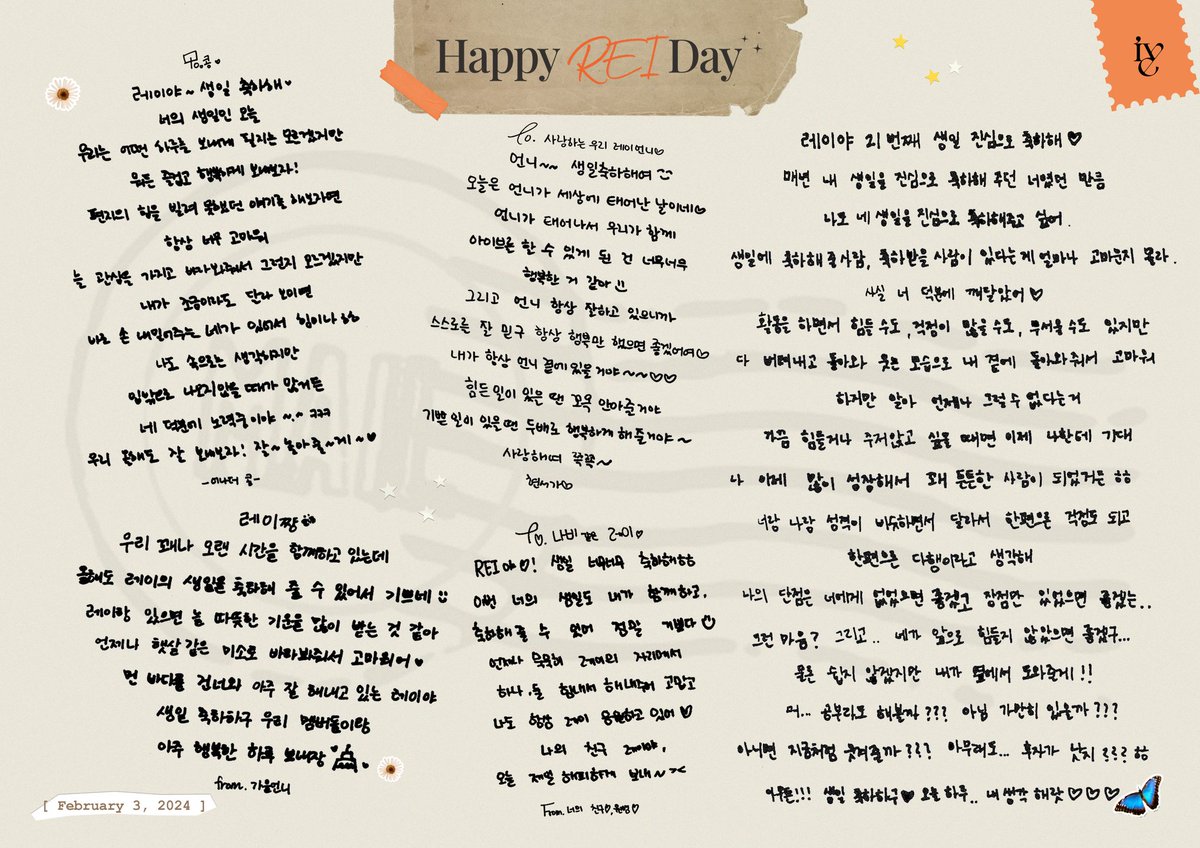 Happy REI Day
ive
몽콩♡
레이야~ 생일 축하해♡
너의 생일인 오늘
우리는 어떤 하루를 보내게 될지는 모르겠지만
뭐든 즐겁고 행복하게 보내보자!
편지의 힘을 빌려 못했던 얘기를 해보자면
항상 너무 고마워
늘 관심을 가지고 바라봐줘서 그런지 모르겠지만
내가 조금이라도 달라 보이면
바로 손 내밀어주는 네가 있어서 힘이나 ㅎㅎ
나도 속으로는 생각하지만
입밖으로 나오지않을 때가 많거든
네 덕분에 노력중이야 ^.^ ㅋㅋㅋ
우리 올해도 잘 보내보자! 잘~ 놀아줄~게~♡
레이쨩
우리 꽤나 오랜 시간을 함께하고 있는데
올해도 레이의 생일을 축하해 줄 수 있어서 기쁘네
레이랑 있으면 늘 따뜻한 기운을 많이 받는 것 같아
언제나 햇살같은 미소로 바라봐줘서 고마워어♡
먼 바다를 건너와 아주 잘 해내고 있는 레이야
생일 축하하구 우리 멤버들이랑
아주 행복한 하루 보내장
from. 가을언니
[ February 3, 2024 ]
To. 사랑하는 우리 레이언니♡
언니~~ 생일축하해여
오늘은 언니가 세상에 태어난 날이네♡
언니가 태어나서 우리가 함께
아이브를 할 수 있게 된 건 너무너무
행복한 거 같아
그리고 언니 항상 잘하고 있으니까
스스로를 잘 믿구 항상 행복만 했으면 좋겠어여♡
내가 항상 언니 곁에있을거야~~♡♡
힘든일이 있을 땐 꼬옥 안아줄거야
기쁜일이 있을땐 두배로 행복하게 해줄거야~
사랑해여 쭉쭉~
현서가♡
To. 나비 같은 레이♡
REI야♡! 생일 너무너무 축하해ㅎㅎ
이번 너의 생일도 내가 함께하고,
축하해줄 수 있어 정말 기쁘다
언제나 묵묵히 레이의 자리에서
하나, 둘 힘내서 해내줘서 고맙고
나도 항상 레이 응원하고 있어♡
나의 친구 레이야,
오늘 제일 해피하게 보내~ ><
From. 너의 친구, 원영♡
레이야 21번째 생일 진심으로 축하해♡
매년 내 생일을 진심으로 축하해 주던 너였던 만큼
나도 네 생일을 진심으로 축하해주고 싶어.
생일에 축하해 줄 사람, 축하받을 사람이 있다는게 얼마나 고마운지 몰라.
사실 너 덕분에 깨달았어♡
활동을 하면서 힘들 수도, 걱정이 많을 수도, 무서울 수도 있지만
다 버텨내고 돌아와 웃는 모습으로 내 곁에 돌아와줘서 고마워
하지만 알아 언제나 그럴 수 없다는거
가끔 힘들거나 주저앉고 싶을 때면 이제 나한테 기대
나 이제 많이 성장해서 꽤 든든한 사람이 되었거든 ㅎㅎ
너랑 나랑 성격이 비슷하면서 달라서 한편으론 걱정도 되고
한편으론 다행이라고 생각해
나의 단점은 너에게 없었으면 좋겠고 장점만 있었으면 좋겠는..
그런 마음? 그리고.. 네가 앞으로 힘들지 않았으면 좋겠구...
물론 쉽지 않겠지만 내가 옆에서 도와줄게!!
머... 공부라도 해볼까??? 아님 가만히 있을까???
아니면 지금처럼 웃겨줄까??? 아무래도... 후자가 낫지??? ㅎㅎ
아무튼!!! 생일 축하하구♥ 오늘 하루.. 내 생각 해랏♡♡♡